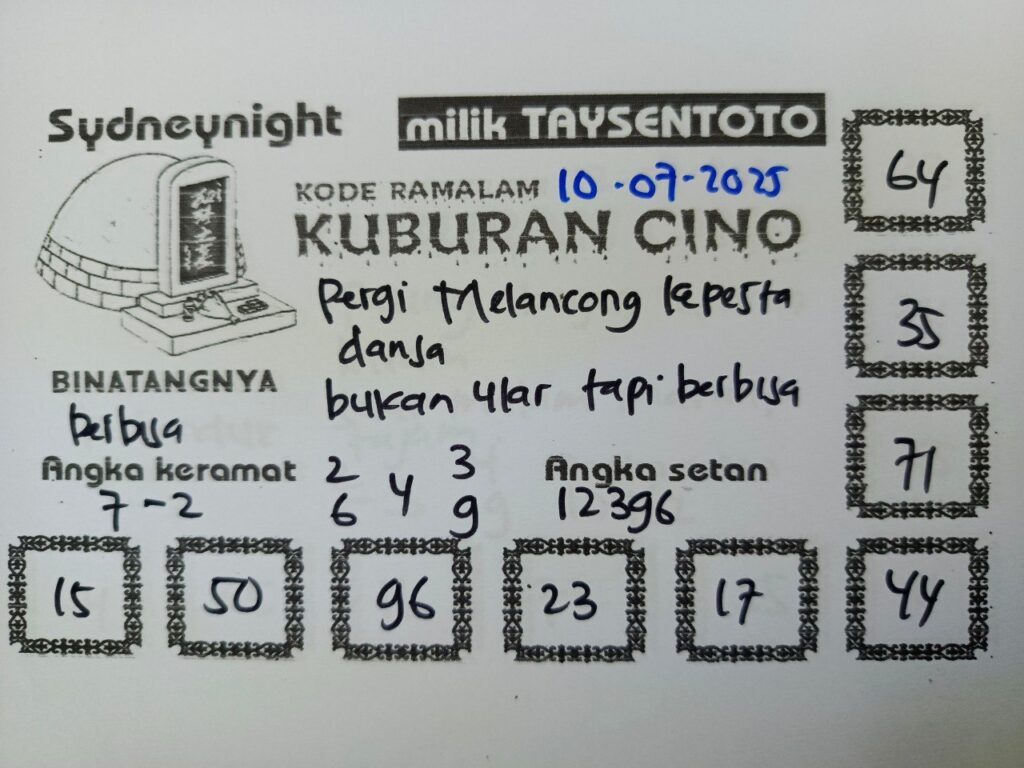 Sydneynight
milik TAYSENTOTO
KODE RAMALAM 10-07-2025
KUBURAN CINO
Pergi Melancong kepesta
dansa
bukan ular tapi berbisa
BINATANGNYA
berbisa
Angka keramat
7-2
2 3
4
6 9
Angka setan
12396
64
35
71
15 50 96 23 17 44